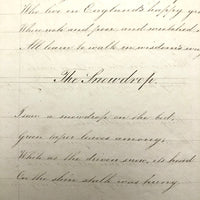 Who live in England's happy
Where rich and poor and wretched
All learn to walk in wisdom's way
The Snowdrop.
I saw a snowdrop on the bed,
Green taper leaves among;
White as the driven snow, its head
On the slim stalk was hung